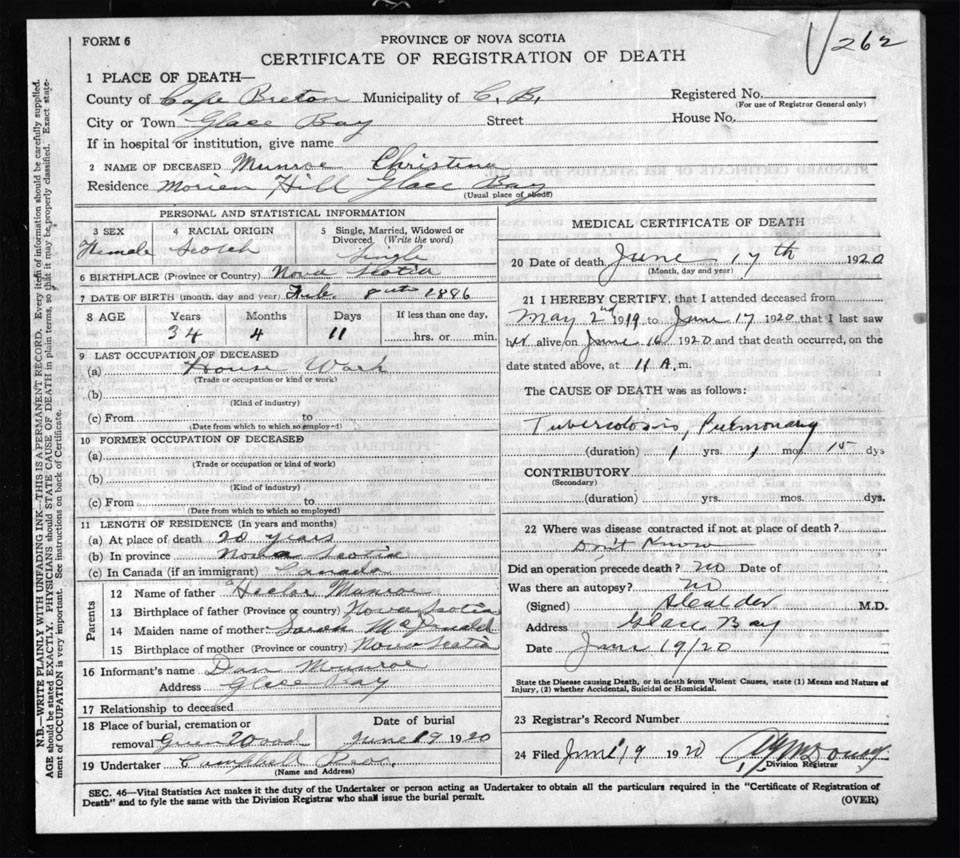 262
FORM 6
PROVINCE OF NOVA SCOTIA
CERTIFICATE OF REGISTRATION OF DEATH
1 PLACE OF DEATH—
County of Cape Breton Municipality of C. B. Registered No.
(For use of Registrar General only)
City or Town Glace Bay Street House No.
If in hospital or institution, give name
2 NAME OF DECEASED Munroe Christina
Residence Morien Hill Glace Bay
(Usual place of abode)
PERSONAL AND STATISTICAL INFORMATION
3 SEX 4 RACIAL ORIGIN 5 Single, Married, Widowed or Divorced. (Write the word)
Female Scotch Single
6 BIRTHPLACE (Province or Country) Nova Scotia
7 DATE OF BIRTH (month, day and year) Feb. 8th 1886
8 AGE Years Months Days If less than one day,
34 4 11 hrs. or min.
9 LAST OCCUPATION OF DECEASED
(a) House Work
(Trade or occupation or kind of work)
(b)
(Kind of industry)
(c) From to
(Date from which to which so employed)
10 FORMER OCCUPATION OF DECEASED
(a)
(Trade or occupation or kind of work)
(b)
(Kind of industry)
(c) From to
(Date from which to which so employed)
11 LENGTH OF RESIDENCE (In years and months)
(a) At place of death 20 years
(b) In province Nova Scotia
(c) In Canada (if an immigrant) Canada
Parents
12 Name of father Hector Munroe
13 Birthplace of father (Province or country) Nova Scotia
14 Maiden name of mother Sarah McDonald
15 Birthplace of mother (Province or country) Nova Scotia
16 Informant's name Dan Munroe
Address Glace Bay
17 Relationship to deceased
18 Place of burial, cremation or removal Green Wood
Date of burial June 19 1920
19 Undertaker Campbell Bros.
(Name and Address)
MEDICAL CERTIFICATE OF DEATH
20 Date of death June 17th 1920
(Month, day and year)
21 I HEREBY CERTIFY, that I attended deceased from
May 2nd 1919 to June 17 1920 that I last saw
her alive on June 16 1920 and that death occurred, on the
date stated above, at 11 A. m.
The CAUSE OF DEATH was as follows:
Tuberculosis, Pulmonary
(duration) 1 yrs. 1 mos. 15 dys
CONTRIBUTORY
(Secondary)
(duration) yrs. mos. dys.
22 Where was disease contracted if not at place of death?
Don't Know
Did an operation precede death? No Date of
Was there an autopsy? No
(Signed) M.D.
Address Glace Bay
Date June 19/20
State the Disease causing Death, or in death from Violent Causes, state (1) Means and Nature of
Injury, (2) whether Accidental, Suicidal or Homicidal.
23 Registrar's Record Number
24 Filed June 19 1920
Division Registrar
SEC. 46—Vital Statistics Act makes it the duty of the Undertaker or person acting as Undertaker to obtain all the particulars required in the "Certificate of Registration of
Death" and to fyle the same with the Division Registrar who shall issue the burial permit. (OVER)
N.B.—WRITE PLAINLY WITH UNFADING INK—THIS IS A PERMANENT RECORD. Every item of information should be carefully supplied.
AGE should be stated EXACTLY. PHYSICIANS should STATE CAUSE OF DEATH in plain terms, so that it may be properly classified. Exact state-
ment of OCCUPATION is very important. See instructions on back of Certificate.